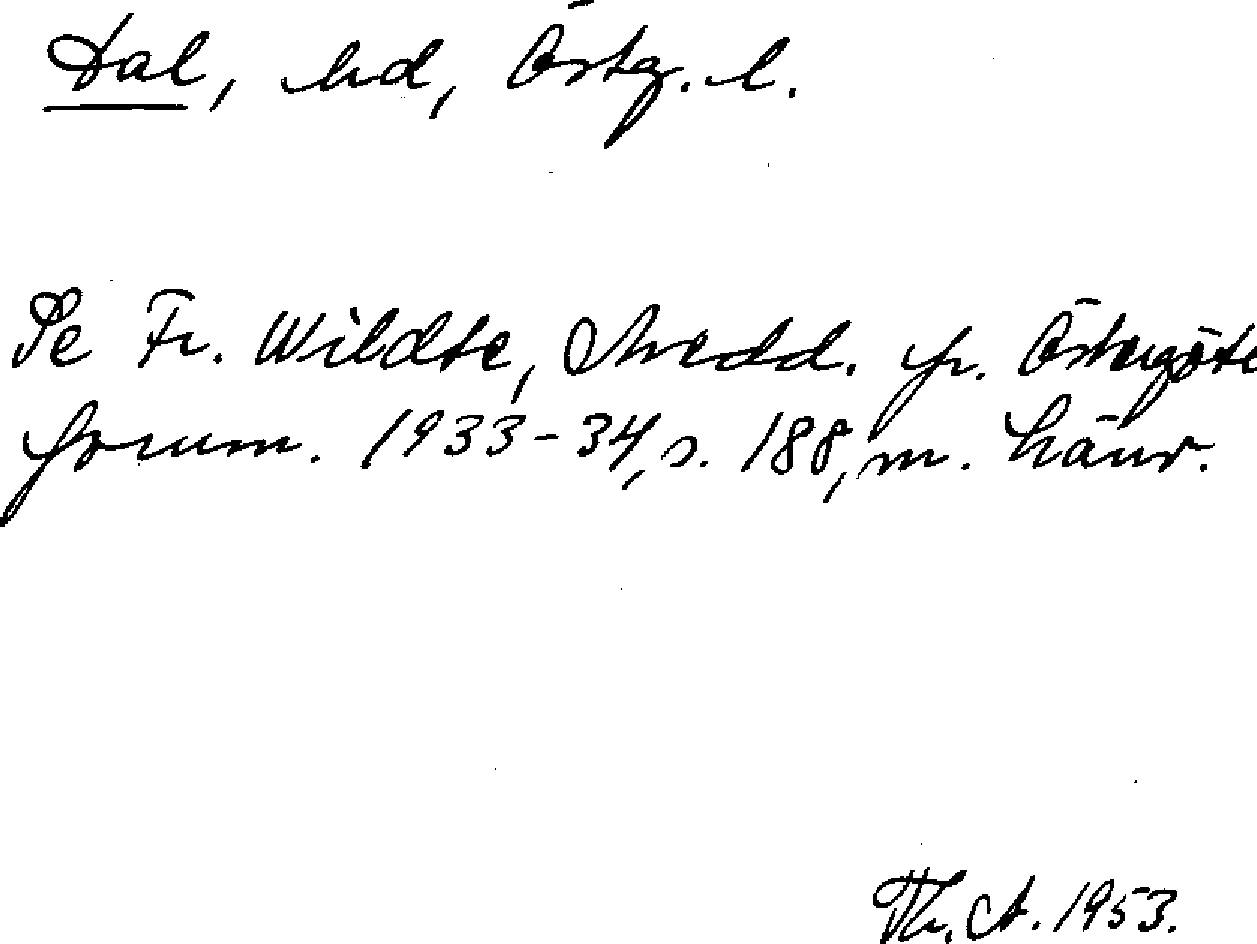 Dal, hd, Östg. l.
Se Fr. Wildte, Medd. fr. Östergötl
fornm. 1933-34, s. 188, m. hänv.
Th. A. 1953.